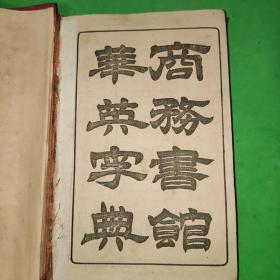 商務書館
華英字典